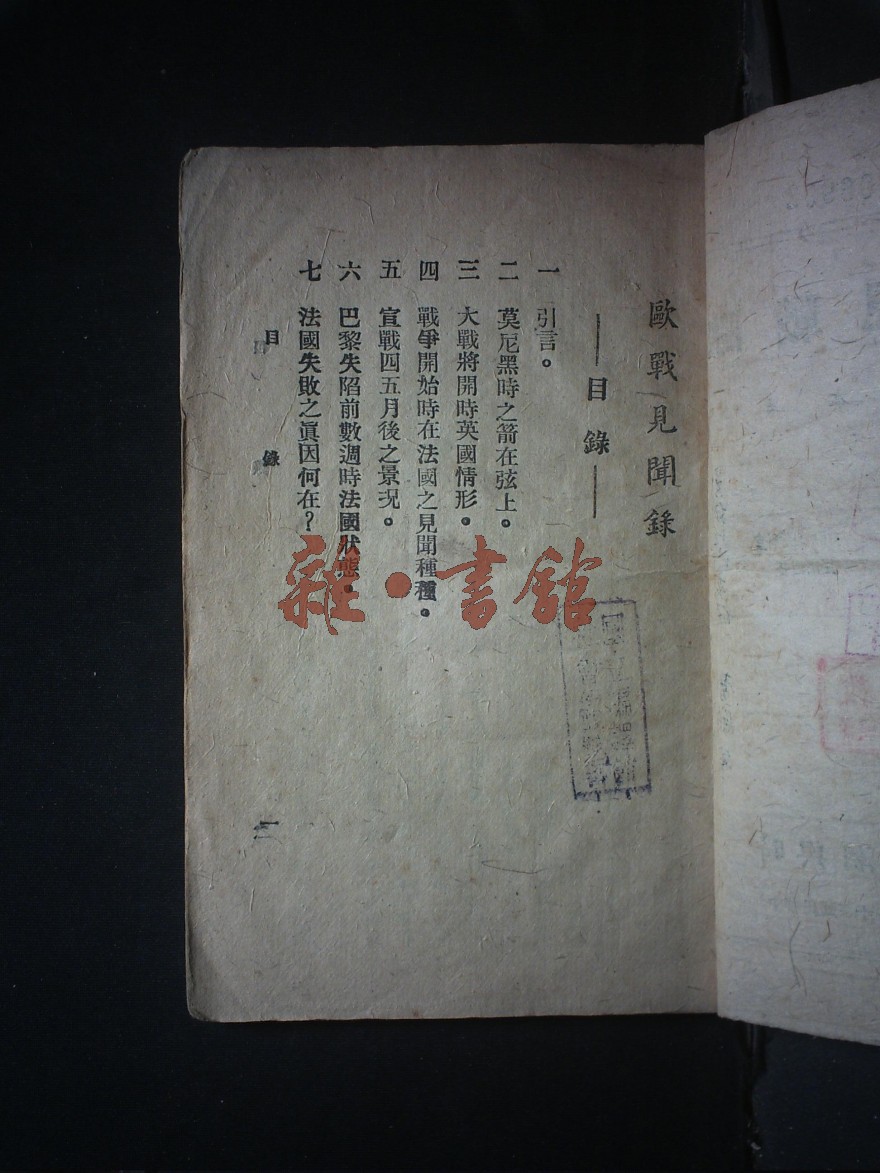 歐戰見聞錄
目錄
一 引言。
二 莫尼黑時之箭在弦上。
三 大戰將開時英國情形。
四 戰爭開始時在法國之見聞種種。
五 宣戰四五月後之景況。
六 巴黎失陷前數週時法國狀態。
七 法國失敗之眞因何在？
目錄
一
雜·書館
國立編譯館